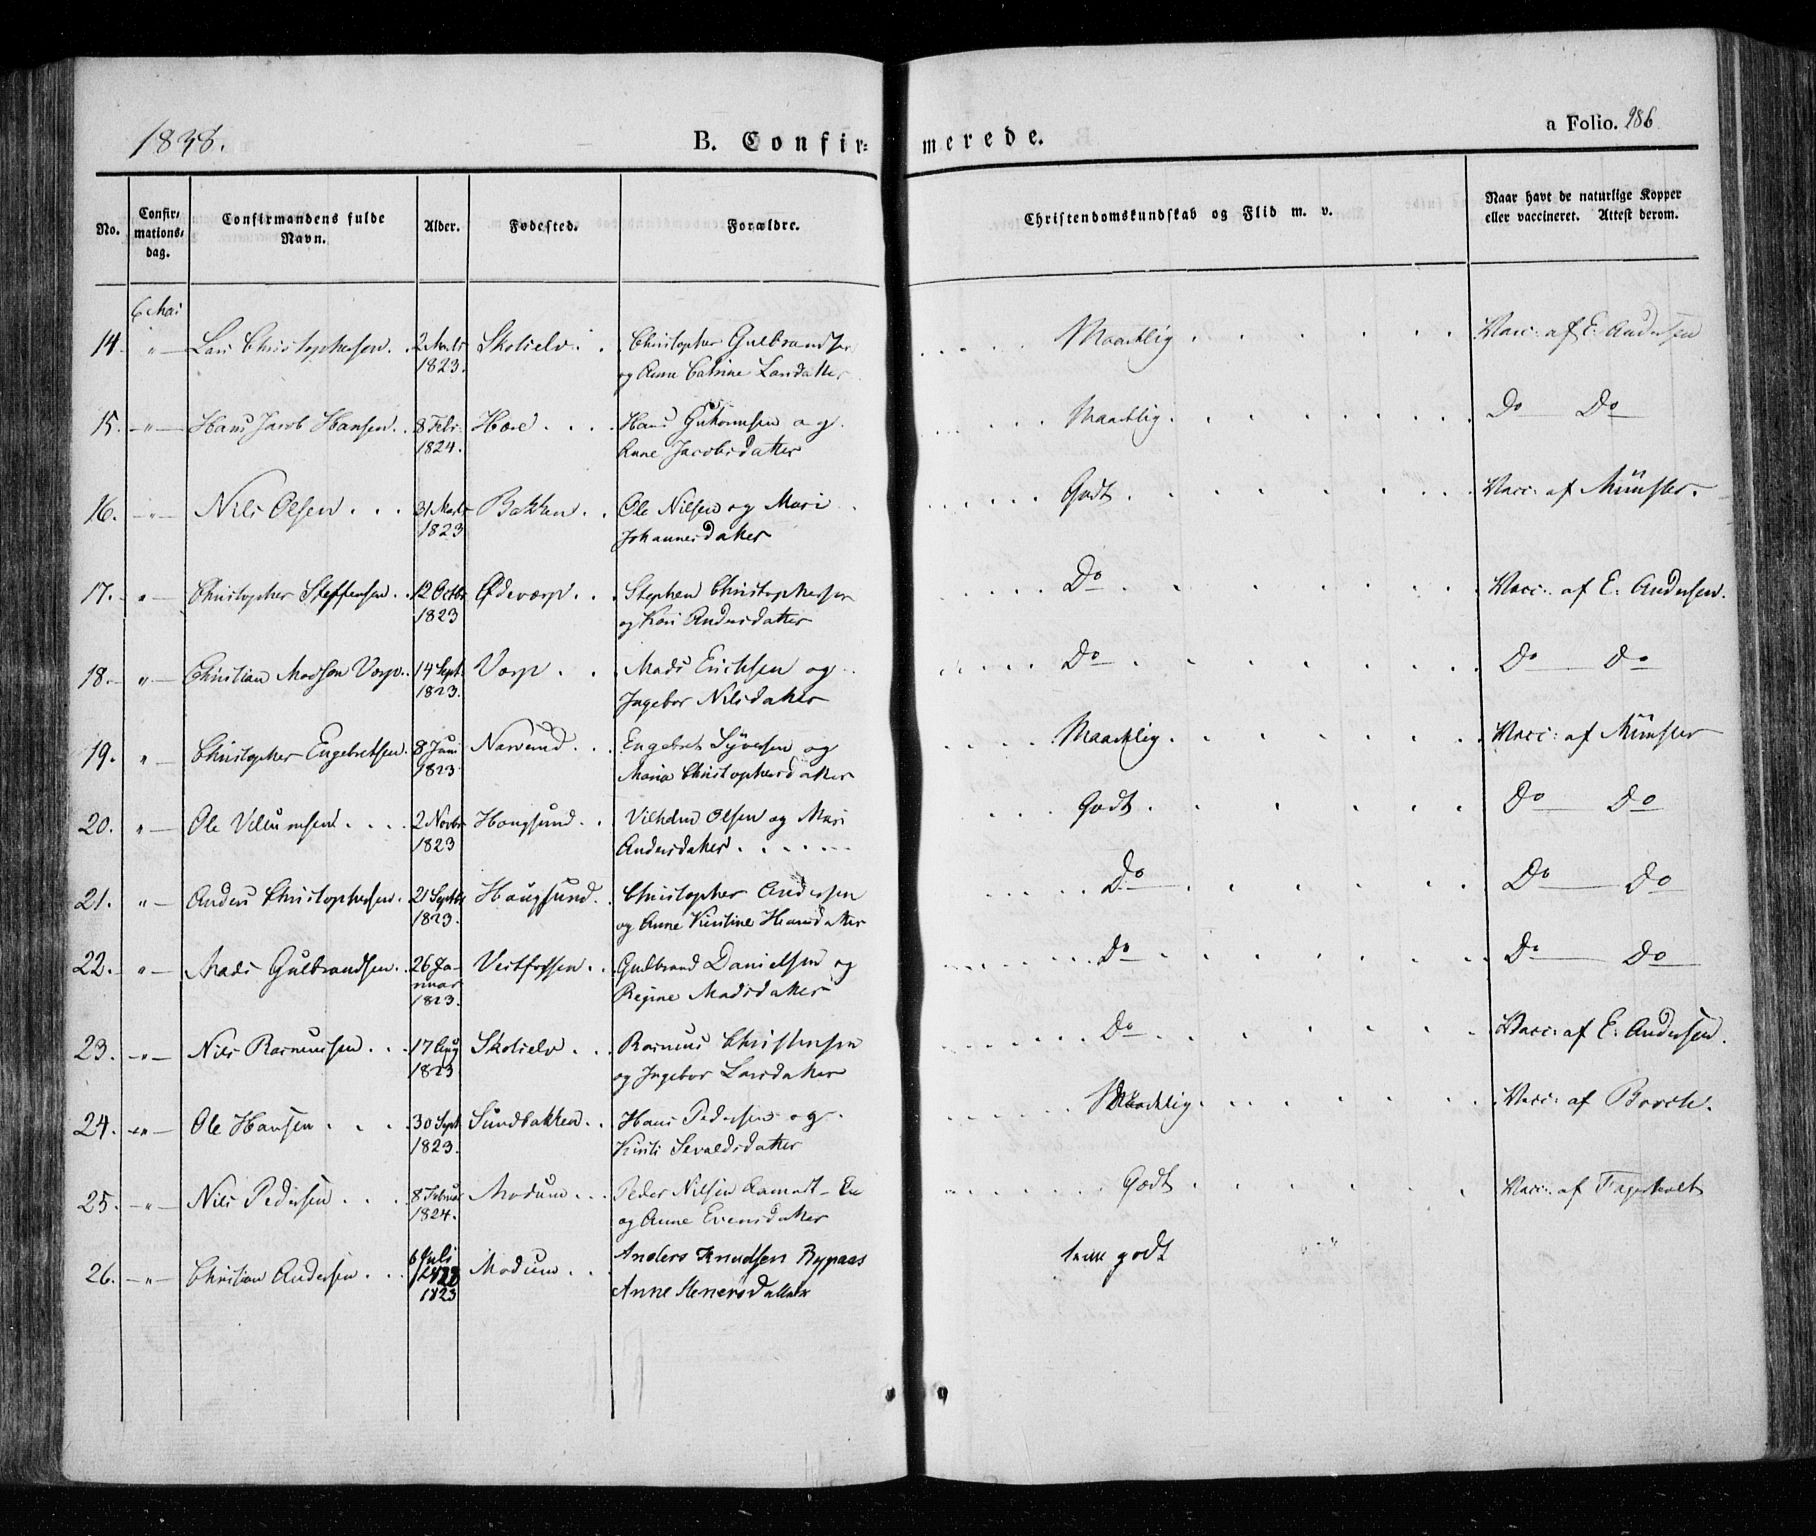 1838.
B. Confir=
merede.
a Folio. 286
No.
Confir=
mations=
dag.
Confirmandens fulde
Navn.
Alder.
Fødested.
Forældre.
Christendomskundskab og Flid m. v.
Naar havt de naturlige Kopper
eller vaccineret. Attest derom.
6 Mai
14. " — Lars Christophersen . . 2 Marts 1823. Skotselv . . Christopher Gulbrandsen
og Anne Catrine Larsdatter Maadelig Vacc: af E. Andersen
15. — " — Hans Jacob Hansen . . 8 Febr. 1824. Hære . . . Hans Guttormsen og
Anne Jacobsdatter Maadelig Do — Do
16. — " — Nils Olsen . . . 31 Marts 1823 Bakken . . Ole Nilsen og Mari
Johannesdatter Godt Vacc: af Münster.
17. " — Christopher Steffensen . . 12 Octbr 1823 Ødeværp . . Stephen Christophersen
og Kari Andersdatter Do Vacc: af E. Andersen.
18. " — Christian Madsen Værp . . 14 Sept. 1823. Værp . . Mads Erichsen og
Ingebor Nilsdatter Do Do — Do
19. " — Christopher Engebretsen . 8 Juni 1823. Narverud . . Engebret Syversen og
Maria Christophersdatter Maadelig Vacc: af Münster
20. " — Ole Villumsen . . . 2 Novbr 1823 Hougsund . . Vilhelm Olsen og Mari
Andersdatter . . . Godt Do — Do
21. " — Anders Christophersen . 21 Septbr 1823. Hougsund . Christopher Andersen
og Anne Kirstine Hansdatter Do Do — Do
22. " — Mads Gulbrandsen . 26 Januar 1823. Vestfossen . . Gulbrand Danielsen og
Regine Madsdatter Do Do — Do
23. — " — Nils Rasmussen . . . 17 Aug 1823 Skotselv . . Rasmus Christensen
og Ingebor Larsdatter Do Vacc: af E. Andersen.
24. — " — Ole Hansen . . . 30 Sept 1823. Sundbakken . . Hans Pedersen og
Kirsti Sevaldsdatter Maadelig Vacc: af Borch.
25. — " — Nils Pedersen . . . 8 Februar 1824. Modum . . . Peder Nilsen Aamodt-Eie
og Anne Evensdatter Godt Vacc: af Fagerholt
26. — " — Christian Andersen . . 6 Juli 1823 Modum . . . Anders Knudsen Bypaas
Anne Stenersdatter godt